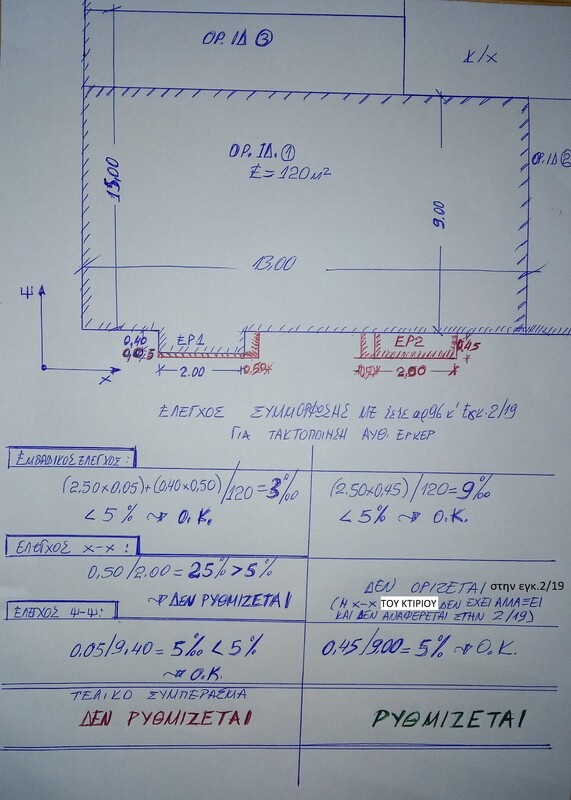 ΟΡ. ΙΔ ③
Κ/Χ
ΟΡ. ΙΔ. ①
Ε = 120 Μ²
ΟΡ.ΙΔ ②
9,00
13,00
Ψ
Χ
0,40
ΕΡ1
ΕΡ2
0,45
2.00
0,50
ΕΛΕΓΧΟΣ ΣΥΜΜΟΡΦΩΣΗΣ ΜΕ αρ96 κ' Εγκ. 2/19
ΓΙΑ ΤΑΚΤΟΠΟΙΗΣΗ ΑΥΘ. ΕΡΚΕΡ
ΕΜΒΑΔΙΚΟΣ ΕΛΕΓΧΟΣ :
(2,50x0,05)+(0,40x0,50)/120=3‰
< 5% ⤳ Ο.Κ.
(2,50x0,45)/120=9‰
< 5% ⤳ Ο.Κ.
ΕΛΕΓΧΟΣ Χ-Χ :
0,50/2,00 = 25% > 5%
⤳ ΔΕΝ ΡΥΘΜΙΖΕΤΑΙ
ΔΕΝ ΟΡΙΖΕΤΑΙ στην εγκ.2/19
(Η Χ-Χ ΤΟΥ ΚΤΙΡΙΟΥ ΔΕΝ ΕΧΕΙ ΑΛΛΑΞΕΙ
ΚΑΙ ΔΕΝ ΑΝΑΦΕΡΕΤΑΙ ΣΤΗΝ 2/19)
ΕΛΕΓΧΟΣ Ψ-Ψ:
0.05/9,40 = 5‰ < 5%
⤳ Ο.Κ.
0,45/900 = 5% ⤳ Ο.Κ.
ΤΕΛΙΚΟ ΣΥΜΠΕΡΑΣΜΑ
ΔΕΝ ΡΥΘΜΙΖΕΤΑΙ
ΡΥΘΜΙΖΕΤΑΙ